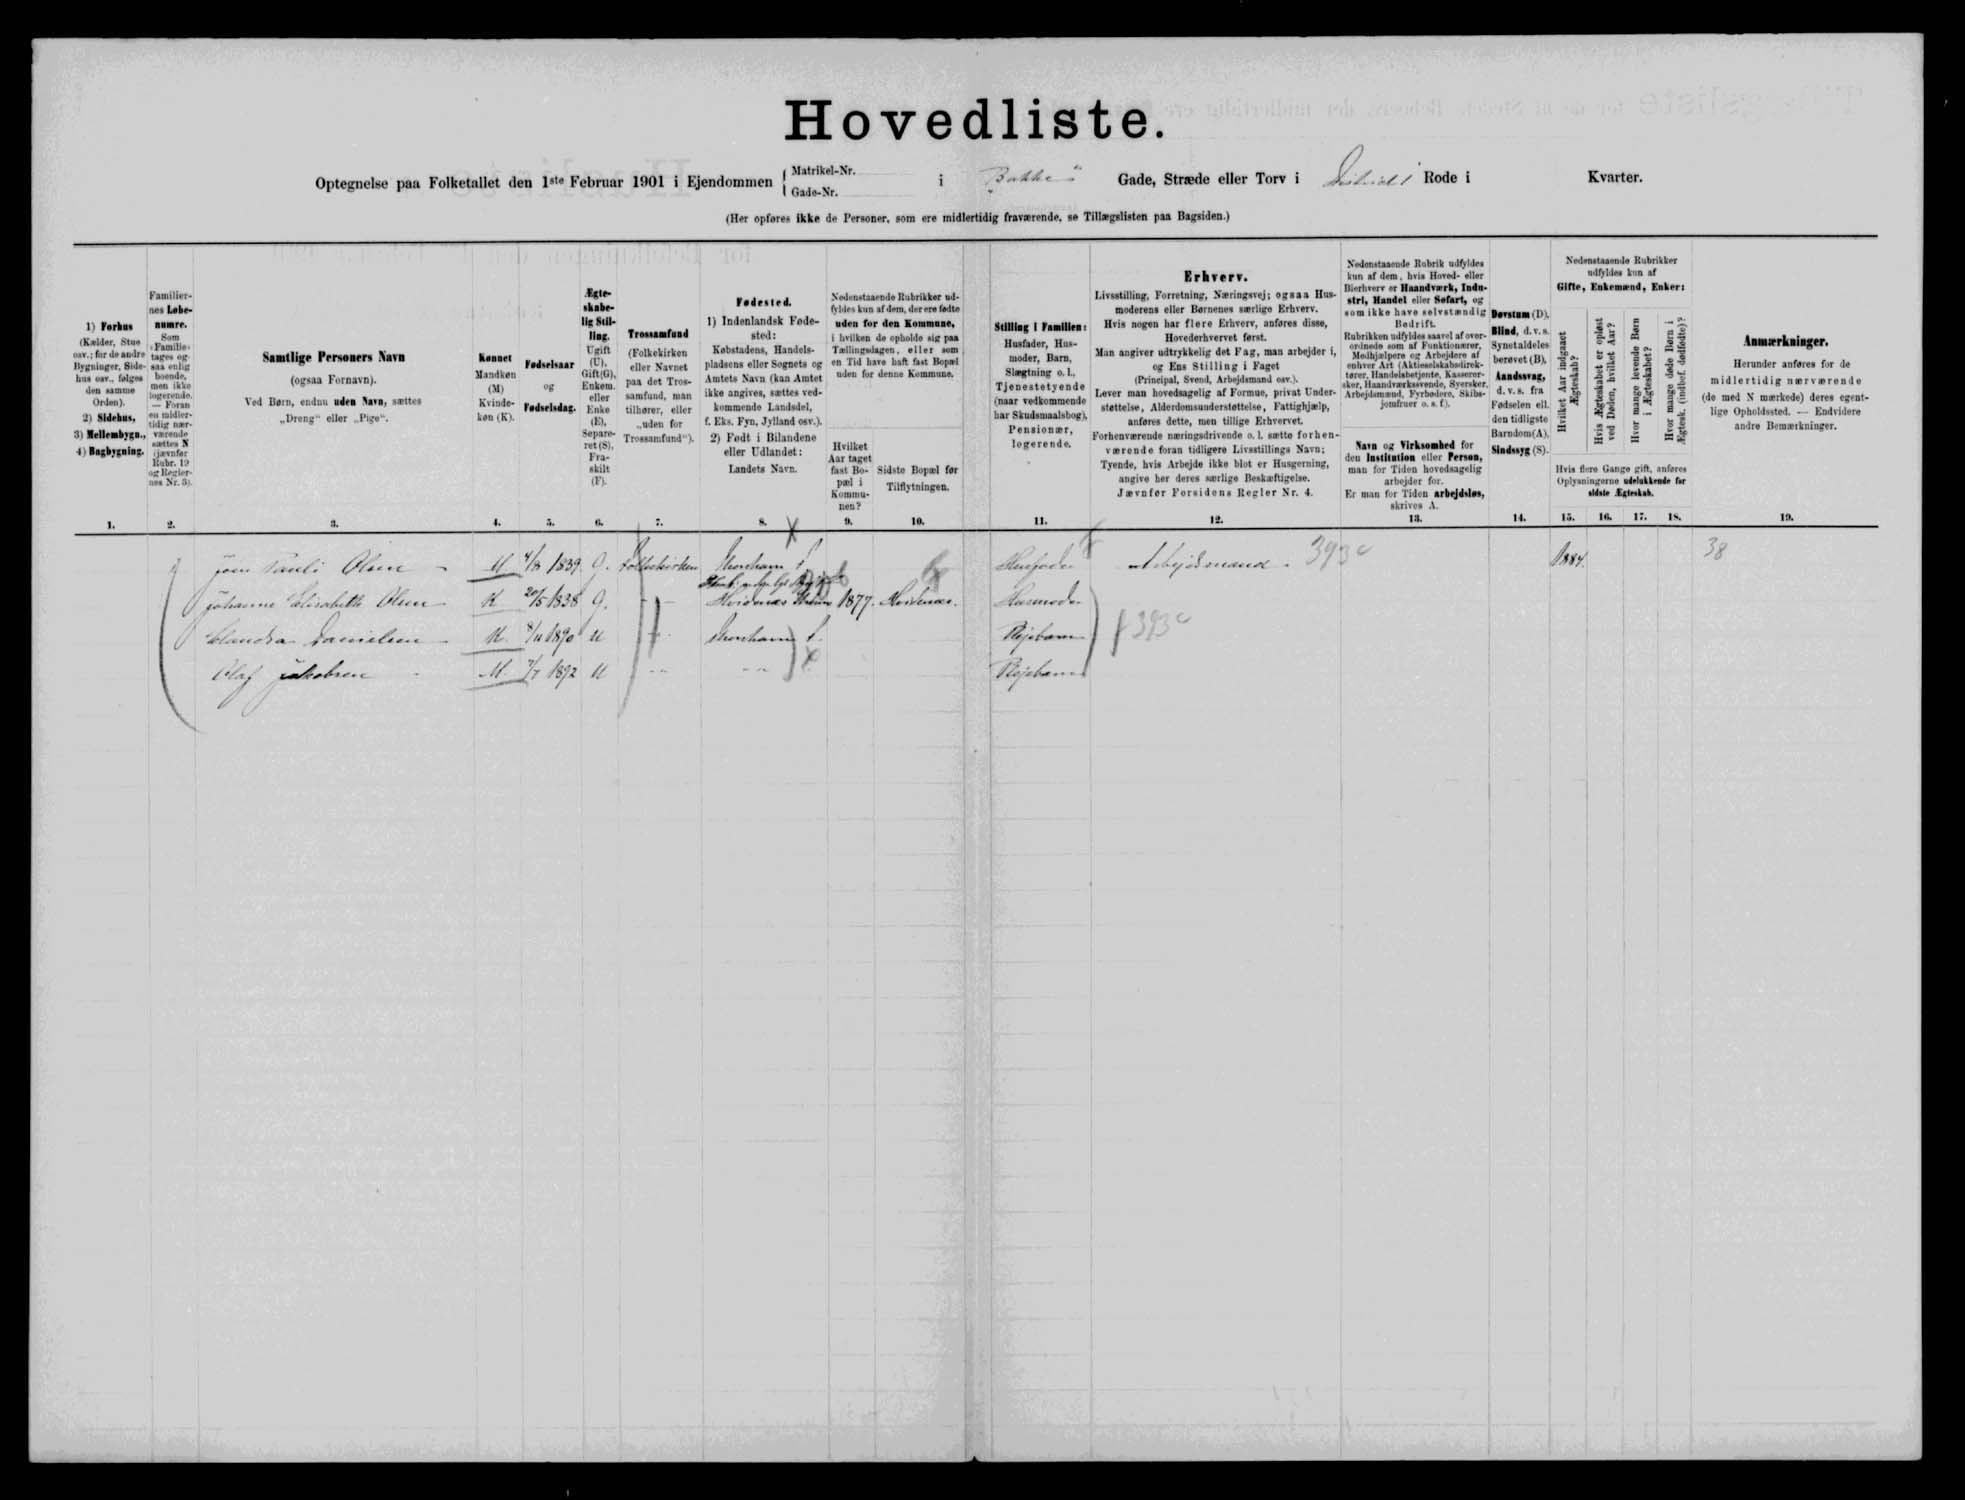 Hovedliste.
Optegnelse paa Folketallet den 1ste Februar 1901 i Ejendommen { Matrikel-Nr. Gade-Nr. i „Bakke“ Gade, Stræde eller Torv i Rode i Kvarter.
(Her opføres ikke de Personer, som ere midlertidig fraværende, se Tillægslisten paa Bagsiden.)
1) Forhus
(Kælder, Stue
osv.; før de andre
Bygninger, Side-
hus osv., følges
den samme
Orden).
2) Sidehus,
3) Mellembygn.,
4) Bagbygning.
Familier-
nes Løbe-
numre.
Som
›Familie‹
tages og-
saa enlig
boende,
men ikke
logerende.
— Foran
en midler-
tidig nær-
værende
sættes N
(jævnfør
Rubr. 19
og Regler-
nes Nr. 3).
Samtlige Personers Navn
(ogsaa Fornavn).
Ved Børn, endnu uden Navn, sættes
„Dreng“ eller „Pige“.
Kønnet
Mandkøn
(M)
Kvinde-
køn (K).
Fødselsaar
og
Fødselsdag.
Ægte-
skabe-
lig Stil-
ling.
Ugift
(U),
Gift(G),
Enkem.
eller
Enke
(E),
Separe-
ret (S),
Fra-
skilt
(F).
Trossamfund
(Folkekirken
eller Navnet
paa det Tros-
samfund, man
tilhører, eller
„uden for
Trossamfund“).
Fødested.
1) Indenlandsk Føde-
sted:
Købstadens, Handels-
pladsens eller Sognets og
Amtets Navn (kan Amtet
ikke angives, sættes ved-
kommende Landsdel,
f. Eks. Fyn, Jylland osv.).
2) Født i Bilandene
eller Udlandet:
Landets Navn.
Nedenstaaende Rubrikker ud-
fyldes kun af dem, der ere fødte
uden for den Kommune,
i hvilken de opholde sig paa
Tællingsdagen, eller som
en Tid have haft fast Bopæl
uden for denne Kommune.
Hvilket
Aar taget
fast Bo-
pæl i
Kommu-
nen?
Sidste Bopæl før
Tilflytningen.
Stilling i Familien:
Husfader, Hus-
moder, Barn,
Slægtning o. l.,
Tjenestetyende
(naar vedkommende
har Skudsmaalsbog),
Pensionær,
logerende.
Erhverv.
Livsstilling, Forretning, Næringsvej; ogsaa Hus-
moderens eller Børnenes særlige Erhverv.
Hvis nogen har flere Erhverv, anføres disse,
Hovederhvervet først.
Man angiver udtrykkelig det Fag, man arbejder i,
og Ens Stilling i Faget
(Principal, Svend, Arbejdsmand osv.).
Lever man hovedsagelig af Formue, privat Under-
støttelse, Alderdomsunderstøttelse, Fattighjælp,
anføres dette, men tillige Erhvervet.
Forhenværende næringsdrivende o. l. sætte forhen-
værende foran tidligere Livsstillings Navn;
Tyende, hvis Arbejde ikke blot er Husgerning,
angive her deres særlige Beskæftigelse.
Jævnfør Forsidens Regler Nr. 4.
Nedenstaaende Rubrik udfyldes
kun af dem, hvis Hoved- eller
Bierhverv er Haandværk, Indu-
stri, Handel eller Søfart, og
som ikke have selvstændig
Bedrift.
Rubrikken udfyldes saavel af over-
ordnede som af Funktionærer,
Medhjælpere og Arbejdere af
enhver Art (Aktieselskabsdirek-
tører, Handelsbetjente, Kasserer-
sker, Haandværkssvende, Syersker,
Arbejdsmænd, Fyrbødere, Skibs-
jomfruer o. s. f.).
Navn og Virksomhed for
den Institution eller Person,
man for Tiden hovedsagelig
arbejder for.
Er man for Tiden arbejdsløs,
skrives A.
Døvstum (D),
Blind, d. v. s.
Synet aldeles
berøvet (B),
Aandssvag,
d. v. s. fra
Fødselen ell.
den tidligste
Barndom (A),
Sindssyg (S).
Nedenstaaende Rubrikker
udfyldes kun af
Gifte, Enkemænd, Enker:
Hvilket Aar indgaaet
Ægteskab?
Hvis Ægteskabet er opløst
ved Døden, hvilket Aar?
Hvor mange levende Børn
i Ægteskabet?
Hvor mange døde Børn i
Ægtesk. (indbef. dødfødte)?
Hvis flere Gange gift, anføres
Oplysningerne udelukkende for
sidste Ægteskab.
Anmærkninger.
Herunder anføres for de
midlertidig nærværende
(de med N mærkede) deres egent-
lige Opholdssted. — Endvidere
andre Bemærkninger.
1. 2. 3. 4. 5. 6. 7. 8. 9. 10. 11. 12. 13. 14. 15. 16. 17. 18. 19.
Joen Pauli Olsen M 4/8 1839 G. Folkekirken Thorshavn Husfader Arbejdsmand 393c 1884. 38
Johanne Elisabeth Olsen K 20/5 1838 G. 1877. Husmoder
Danielsen K. 8/11 1890 U Thorshavn Plejebarn 393c
Olaf Jakobsen M. 7/7 1892 U Plejebarn